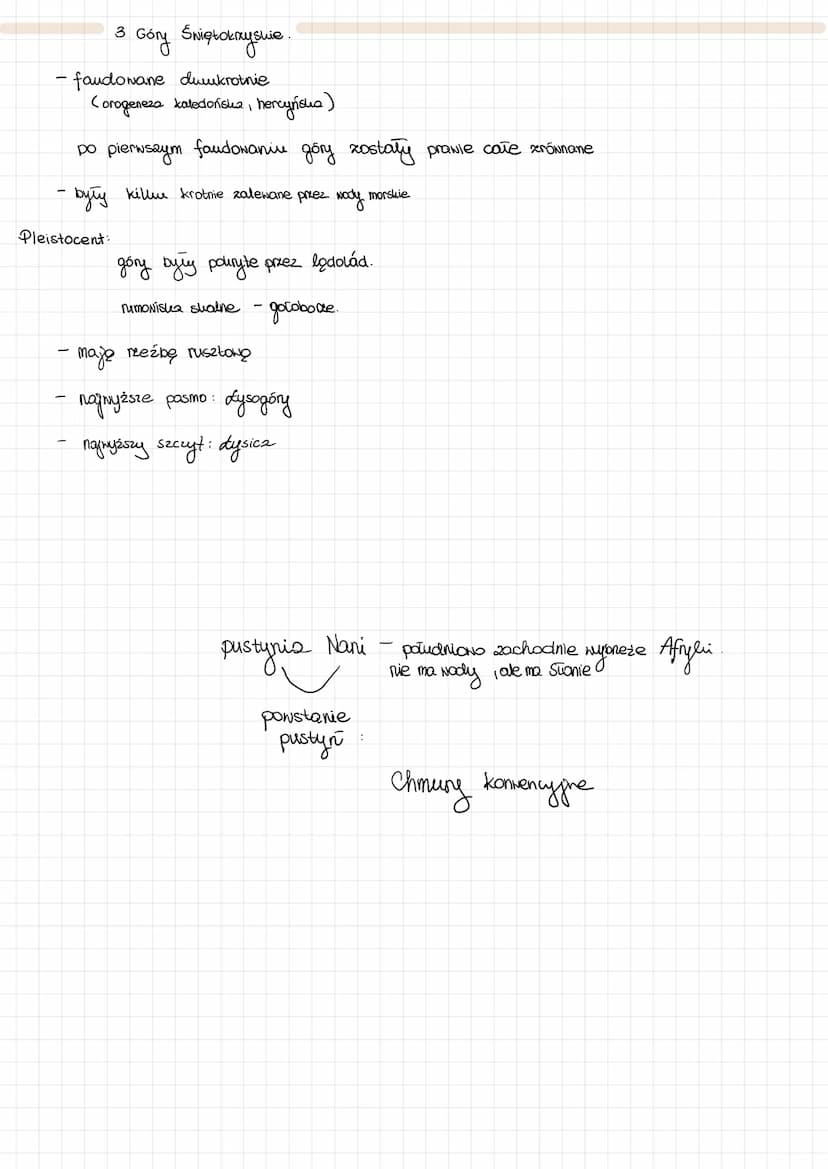 3 Góry Świętokrzyskie.
- fałdowane dwukrotnie
(orogeneza kaledońska, hercyńska)
po pierwszym fałdowaniu góry zostały prawie całe zrównane
- były kilku krotnie zalewane przez wody morskie
Pleistocent:
góry były pokryte przez lądolád.
rumowiska skalne - gołoborze.
- mają rzeźbę rusztową
- najwyższe pasmo: Łysogóry
- najwyższy szczyt: Łysica
pustynia Nani - południowo zachodnie wybrzeże Afryki.
nie ma wody, ale ma słonie
powstanie
pustyń :
Chmury konwencyjne